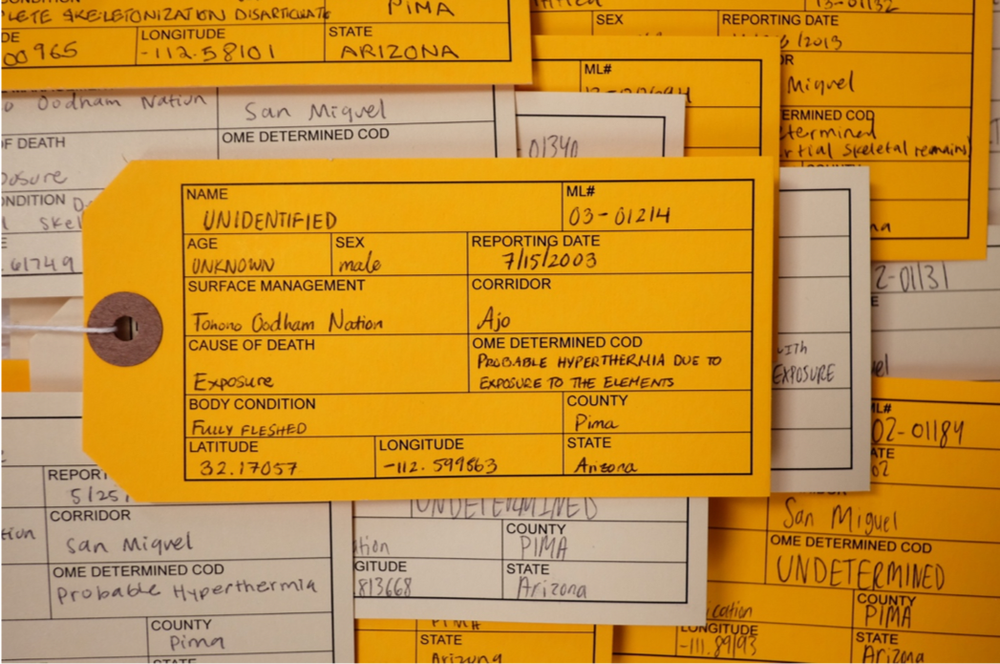 PLETE SKELETONIZATION DISARTICULAT
PIMA
LONGITUDE
STATE
00965
-112.58101
ARIZONA
SEX
REPORTING DATE
/2013
ML#
Miguel
ERMINED COD
termined
rtial skeletal remains)
o Oodham Nation
San Miguel
F DEATH
OME DETERMINED COD
posure
NDITION
Skel
.61749
01340
NAME
ML#
UNIDENTIFIED
03-01214
AGE
SEX
REPORTING DATE
UNKNOWN
male
7/15/2003
SURFACE MANAGEMENT
CORRIDOR
Tohono Oodham Nation
Ajo
CAUSE OF DEATH
OME DETERMINED COD
PROBABLE HYPERTHERMIA DUE TO
Exposure
EXPOSURE TO THE ELEMENTS
BODY CONDITION
COUNTY
FULLY FLESHED
Pima
LATITUDE
LONGITUDE
STATE
32.17057
-112.599563
Arizona
2-01131
with
EXPOSURE
el
ML#
02-01184
ATE
02
San Miguel
OME DETERMINED COD
UNDETERMINED
COUNTY
PIMA
cation
LONGITUDE
STATE
-111.89193
Arizona
REPOR
5/25/
CORRIDOR
tion
San Miguel
OME DETERMINED COD
Probable Hyperthermia
COUNTY
Pima
STATE
UNDETERMINED
COUNTY
ation
PIMA
GITUDE
STATE
.813668
Arizona
PIMA
STATE
Arizona